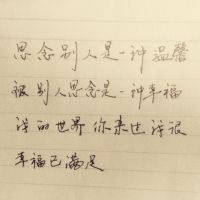 思念别人是一种温馨
被别人思念是一种幸福
我的世界你来过我很
幸福已满足